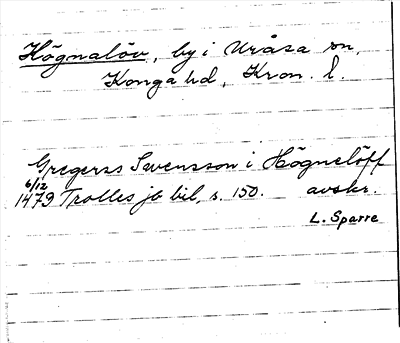 Högnalöv, by i Uråsa sn,
Konga hd, Kron. l.
Gregerss Swensson i Högnelöff
6/12
1479 Trolles jb bil, s. 150. avskr.
L. Sparre